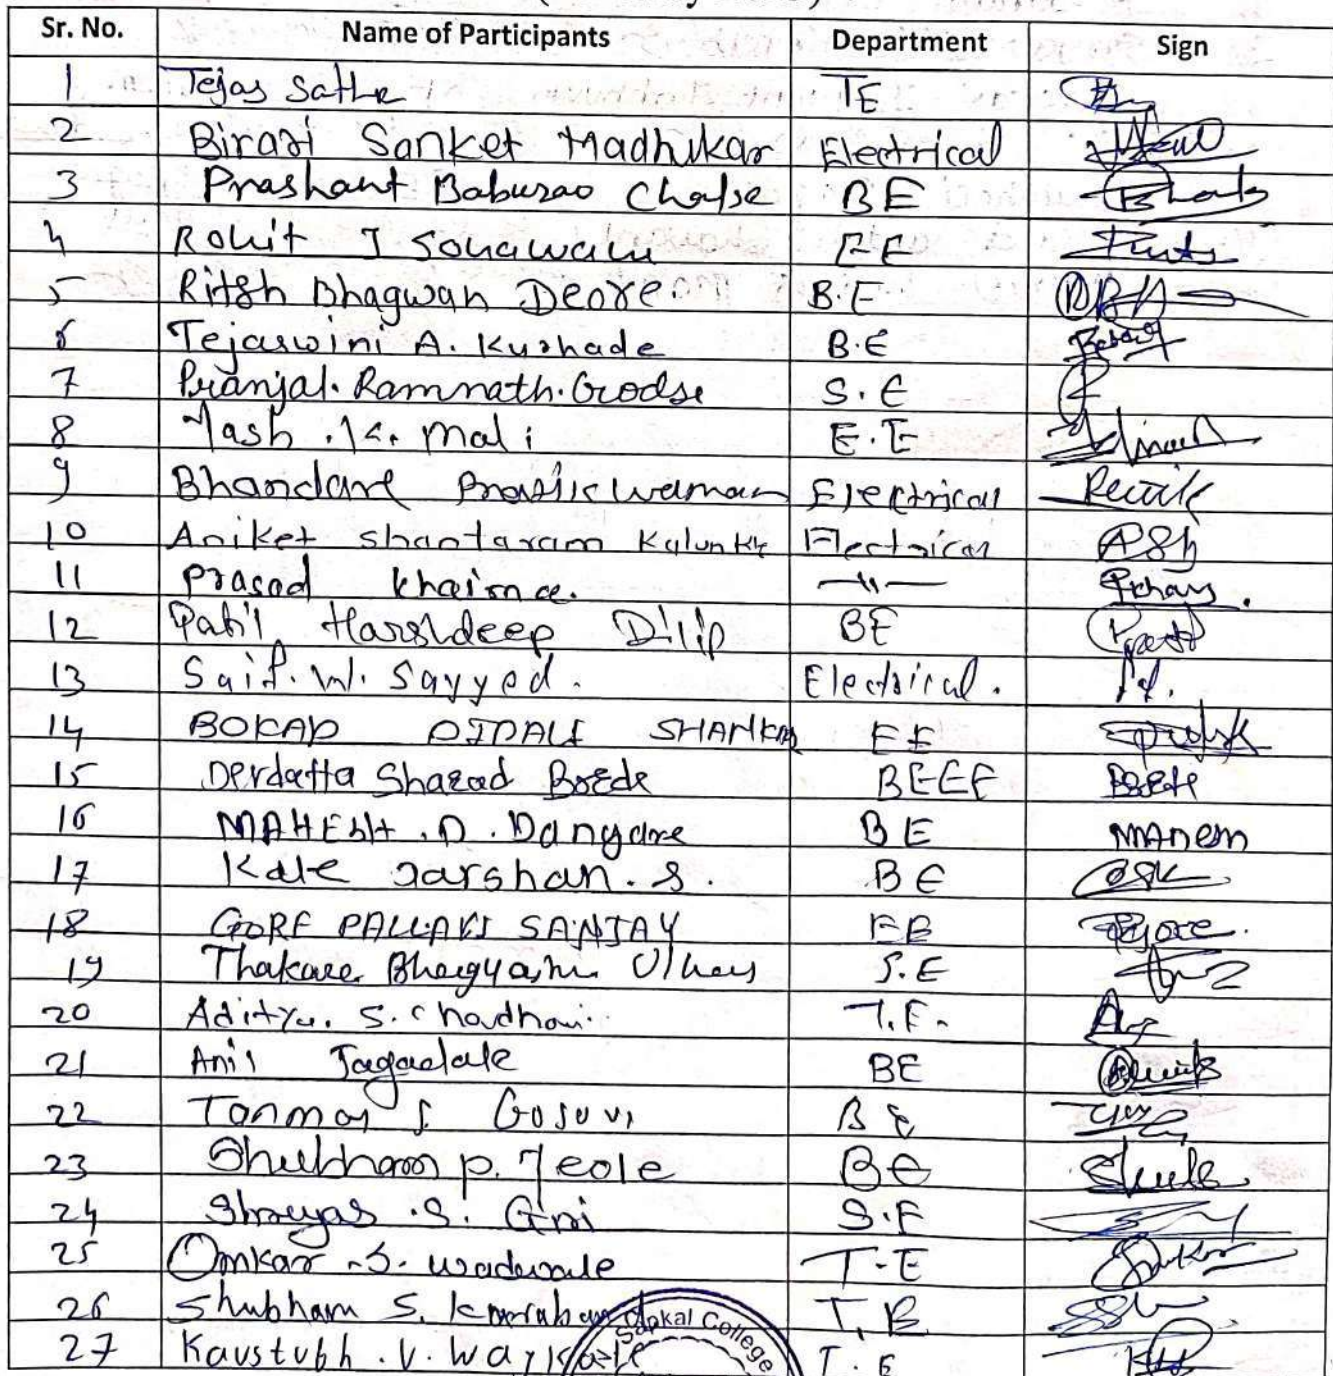 Sr. No. Name of Participants Department Sign
1 Tejas Sathe TE
2 Birari Sanket Madhukar Electrical
3 Prashant Baburao Chalse BE
4 Rohit J Sonawane EE
5 Ritsh Bhagwan Deore. B.E
6 Tejaswini A. Kurhade B.E
7 Pranjal. Ramnath. Godse S.E
8 Yash .K. Mali E.E
9 Bhandare Pratik waman Electrical
10 Aniket shantaram Kalunkhe Electrical
11 Prasad Khairna. —"—
12 Patil Harshdeep Dilip BE
13 Saif. W. Sayyed. Electrical.
14 BOKAD SHANKAR EE
15 Devdatta Sharad Borde BEEE
16 MAHESH .D. Dangare BE
17 Kale Darshan. S. BE
18 GORE PALLAVI SANJAY EE
19 Thakare Bhagyashri Ulhas S.E
20 Aditya. S. Chaudhari. T.E.
21 Anil Jagadale BE
22 Tanmay S. Gosavi BE
23 Shubham P. Yeole BE
24 Shreyas .S. Giri S.E
25 Omkar .S. T-E
26 Shubham S. T.E
27 Kaustubh .V. T.E
Sapkal College